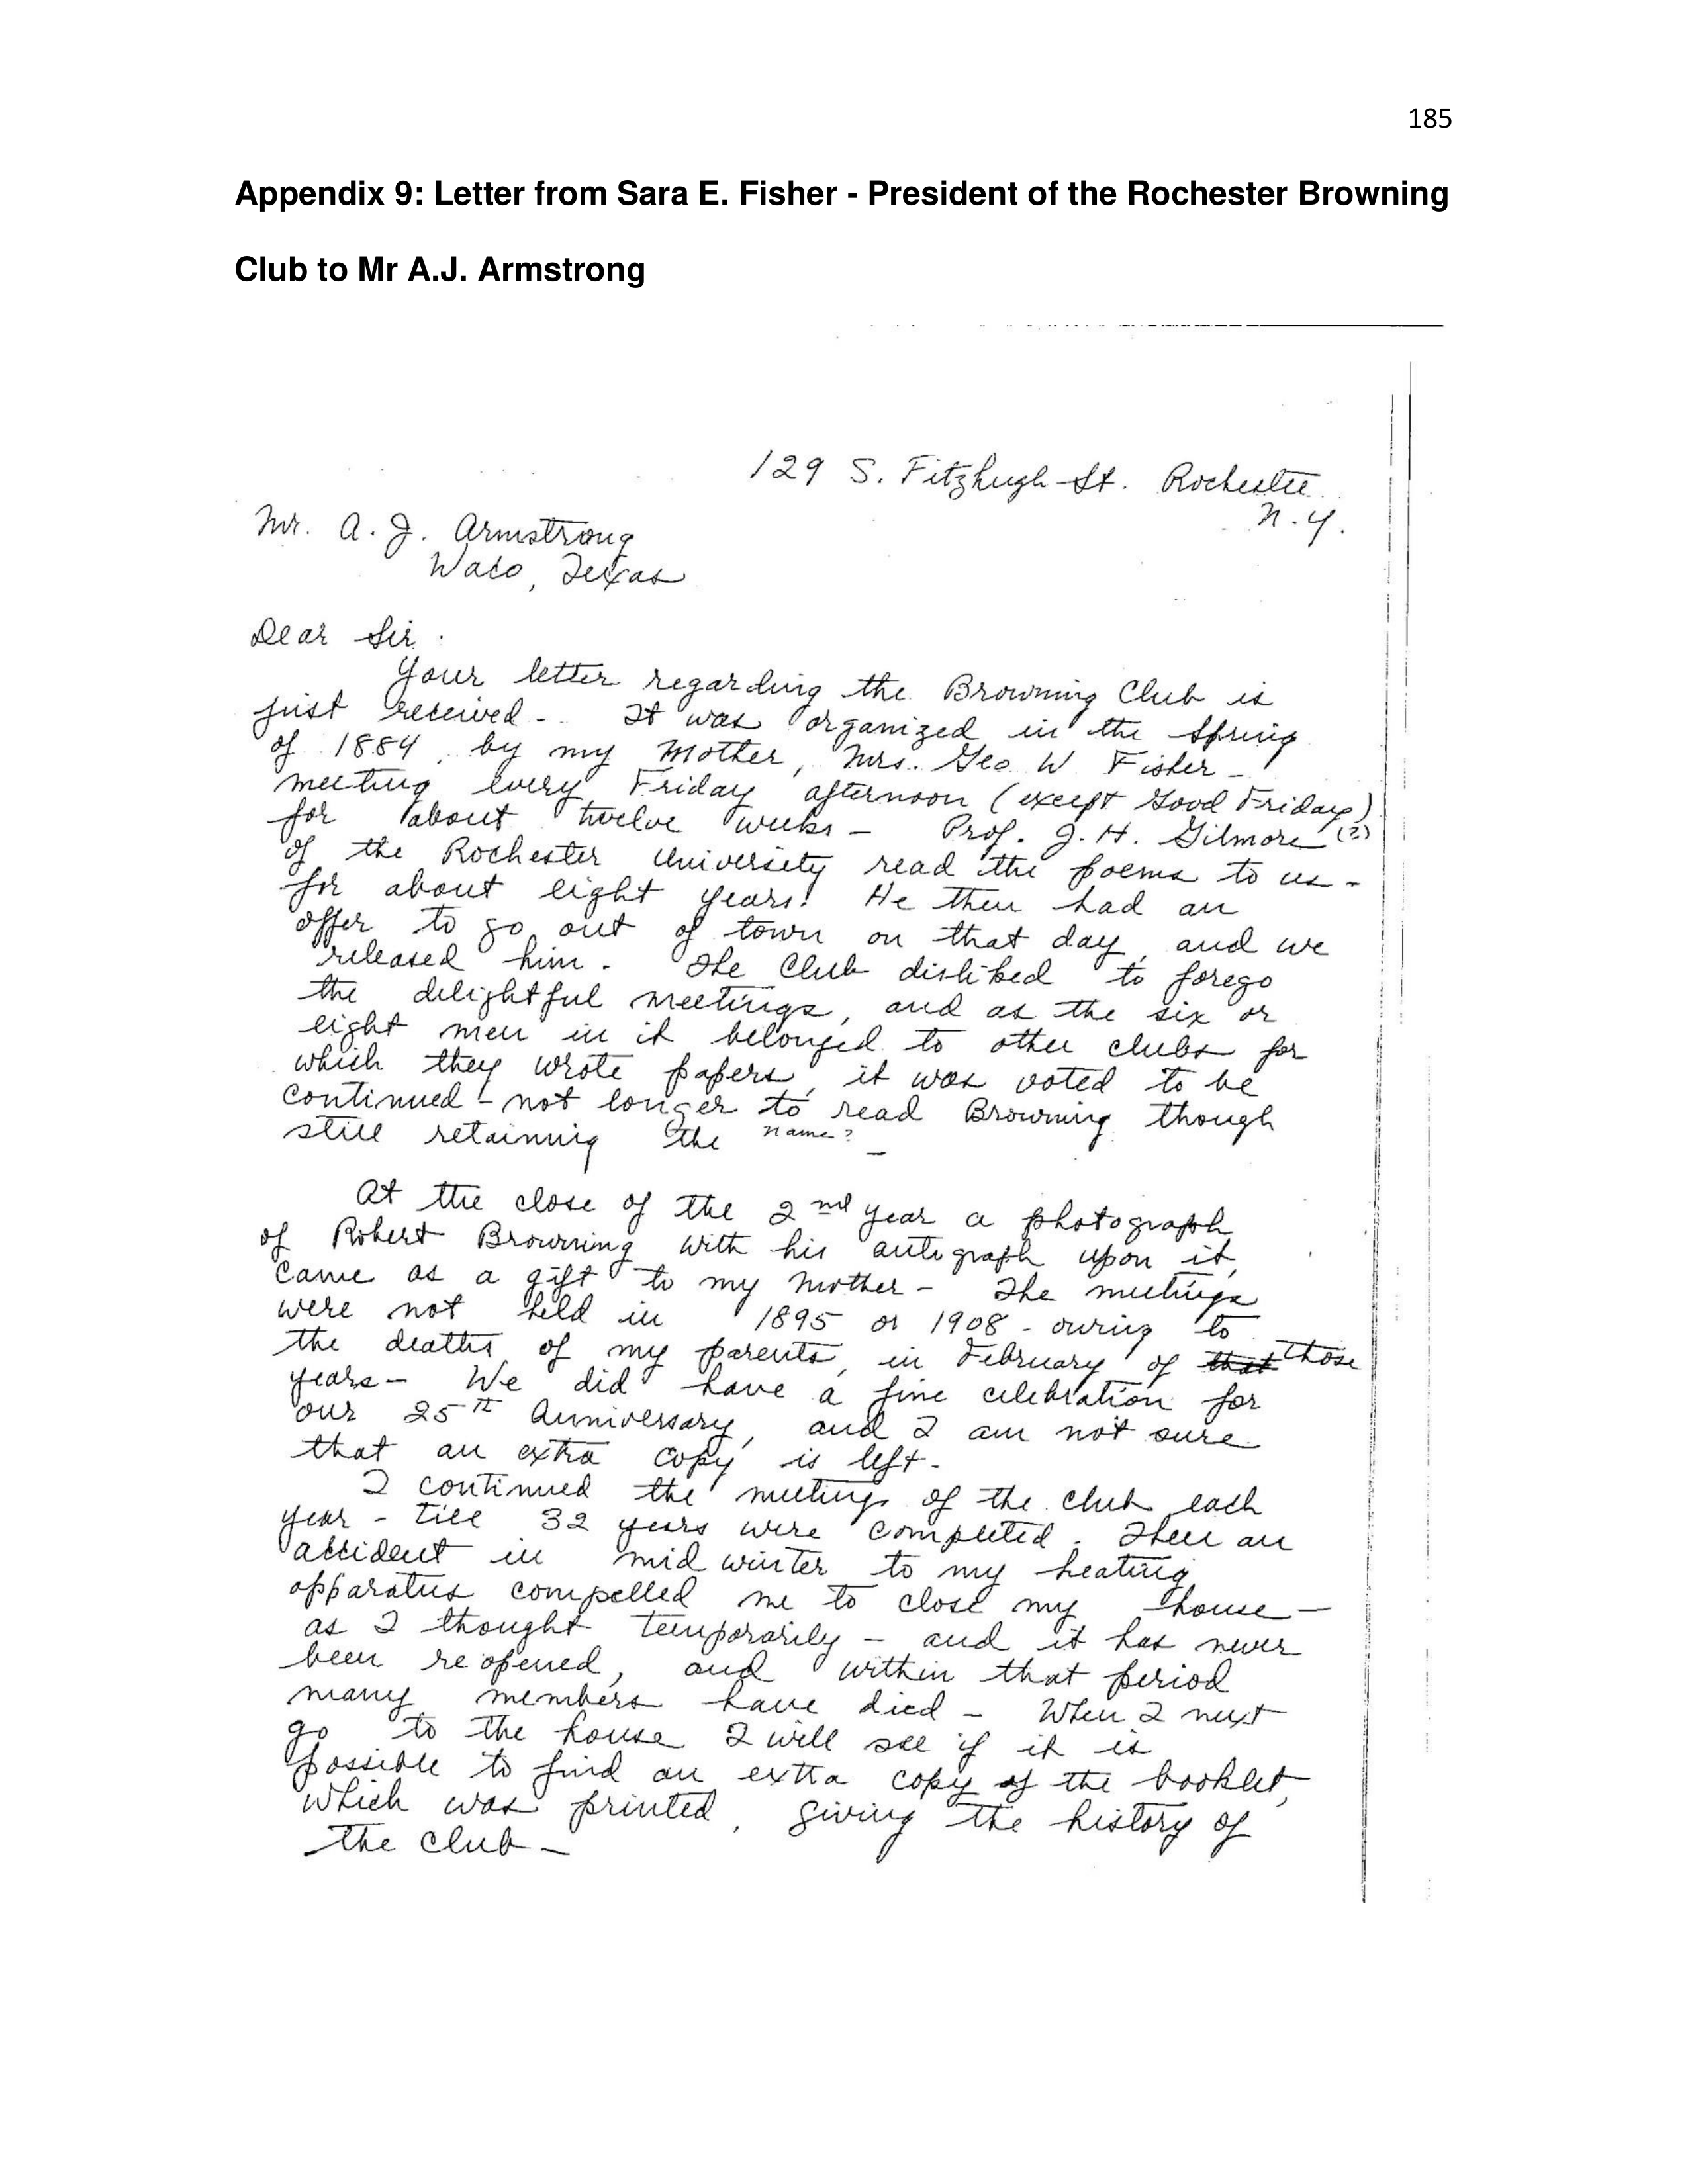 185
Appendix 9: Letter from Sara E. Fisher - President of the Rochester Browning
Club to Mr A.J. Armstrong
129 S. Fitzhugh St. Rochester
N.Y.
Mr. A. J. Armstrong
Waco, Texas
Dear Sir.
Your letter regarding the Browning Club is
just received - It was organized in the Spring
of 1884, by my Mother, Mrs. Geo. W Fisher -
meeting every Friday afternoon (except Good Friday)
for about twelve weeks - Prof. J. H. Gilmore (?)
of the Rochester University read the poems to us -
for about eight years! He then had an
offer to go out of town on that day, and we
released him. The Club disliked to forego
the delightful meetings, and as the six or
eight men in it belonged to other clubs for
which they wrote papers, it was voted to be
continued - not longer to read Browning though
still retaining the name? -
At the close of the 2nd year a photograph
of Robert Browning with his autograph upon it,
came as a gift to my mother - The meetings
were not held in 1895 or 1908 - owing to
the deaths of my parents, in February of that those
years - We did have a fine celebration for
our 25th Anniversary, and I am not sure
that an extra copy is left.
I continued the meetings of the club each
year - till 32 years were completed. Then an
accident in mid winter to my heating
apparatus compelled me to close my house -
as I thought temporarily - and it has never
been reopened, and within that period
many members have died - When I next
go to the house I will see if it is
possible to find an extra copy of the booklet,
which was printed, giving the history of
the club -